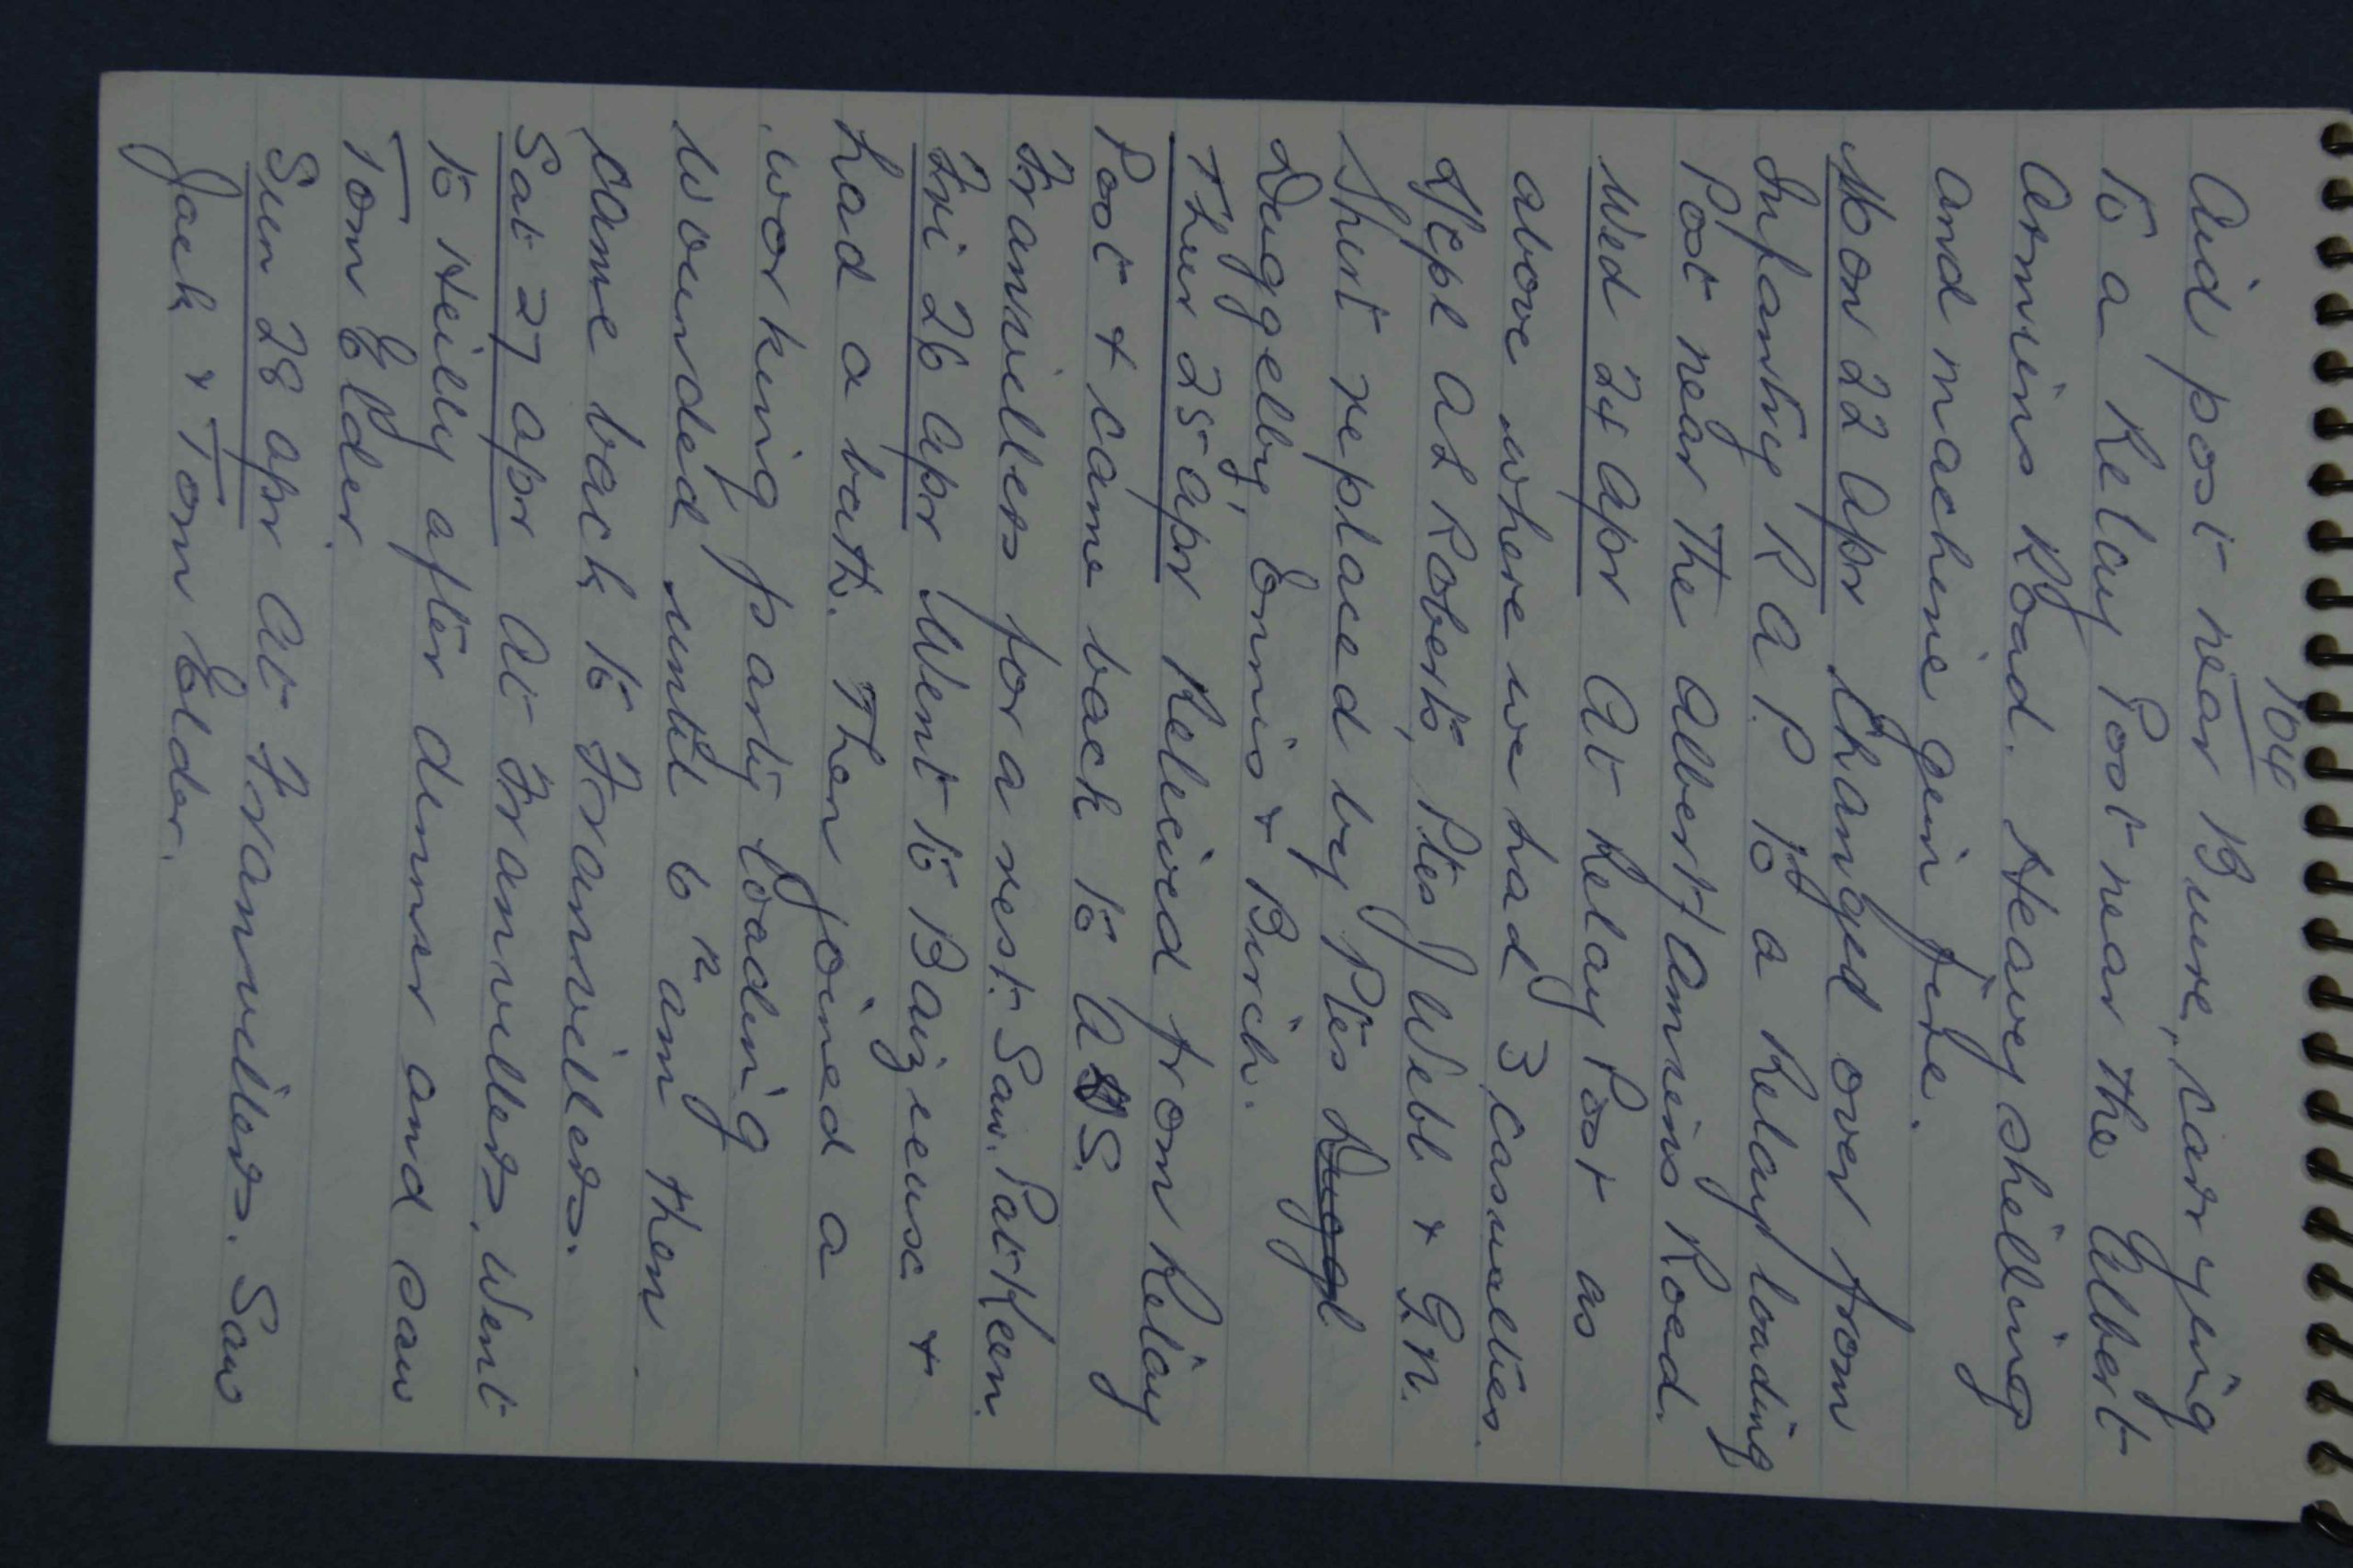 104
Aid post near Bure, carrying
to a Relay Post near the Albert
Amiens Road. Heavy shelling
and machine gun fire.
Mon 22 Apr Changed over from
Infantry R A P to a Relay loading
Post near the Albert Amiens Road.
Wed 24 Apr At Relay Post as
above where we had 3 casualties.
Roberts, Ptes J Webb & G.N.
Shirt replaced by Ptes Dugl
Duggelby, Ennis & Birch.
Thur 25 Apr Relieved from Relay
Post & came back to ADS.
Franvillers for a rest. Saw Pat Keen.
Fri 26 Apr Went to Baizieux &
had a bath. Then joined a
working party loading
wounded until 6 am then
came back to Franvillers.
Sat 27 Apr At Franvillers. Went
to Heilly after dinner and saw
Tom Elder.
Sun 28 Apr At Franvillers. Saw
Jack & Tom Elder.